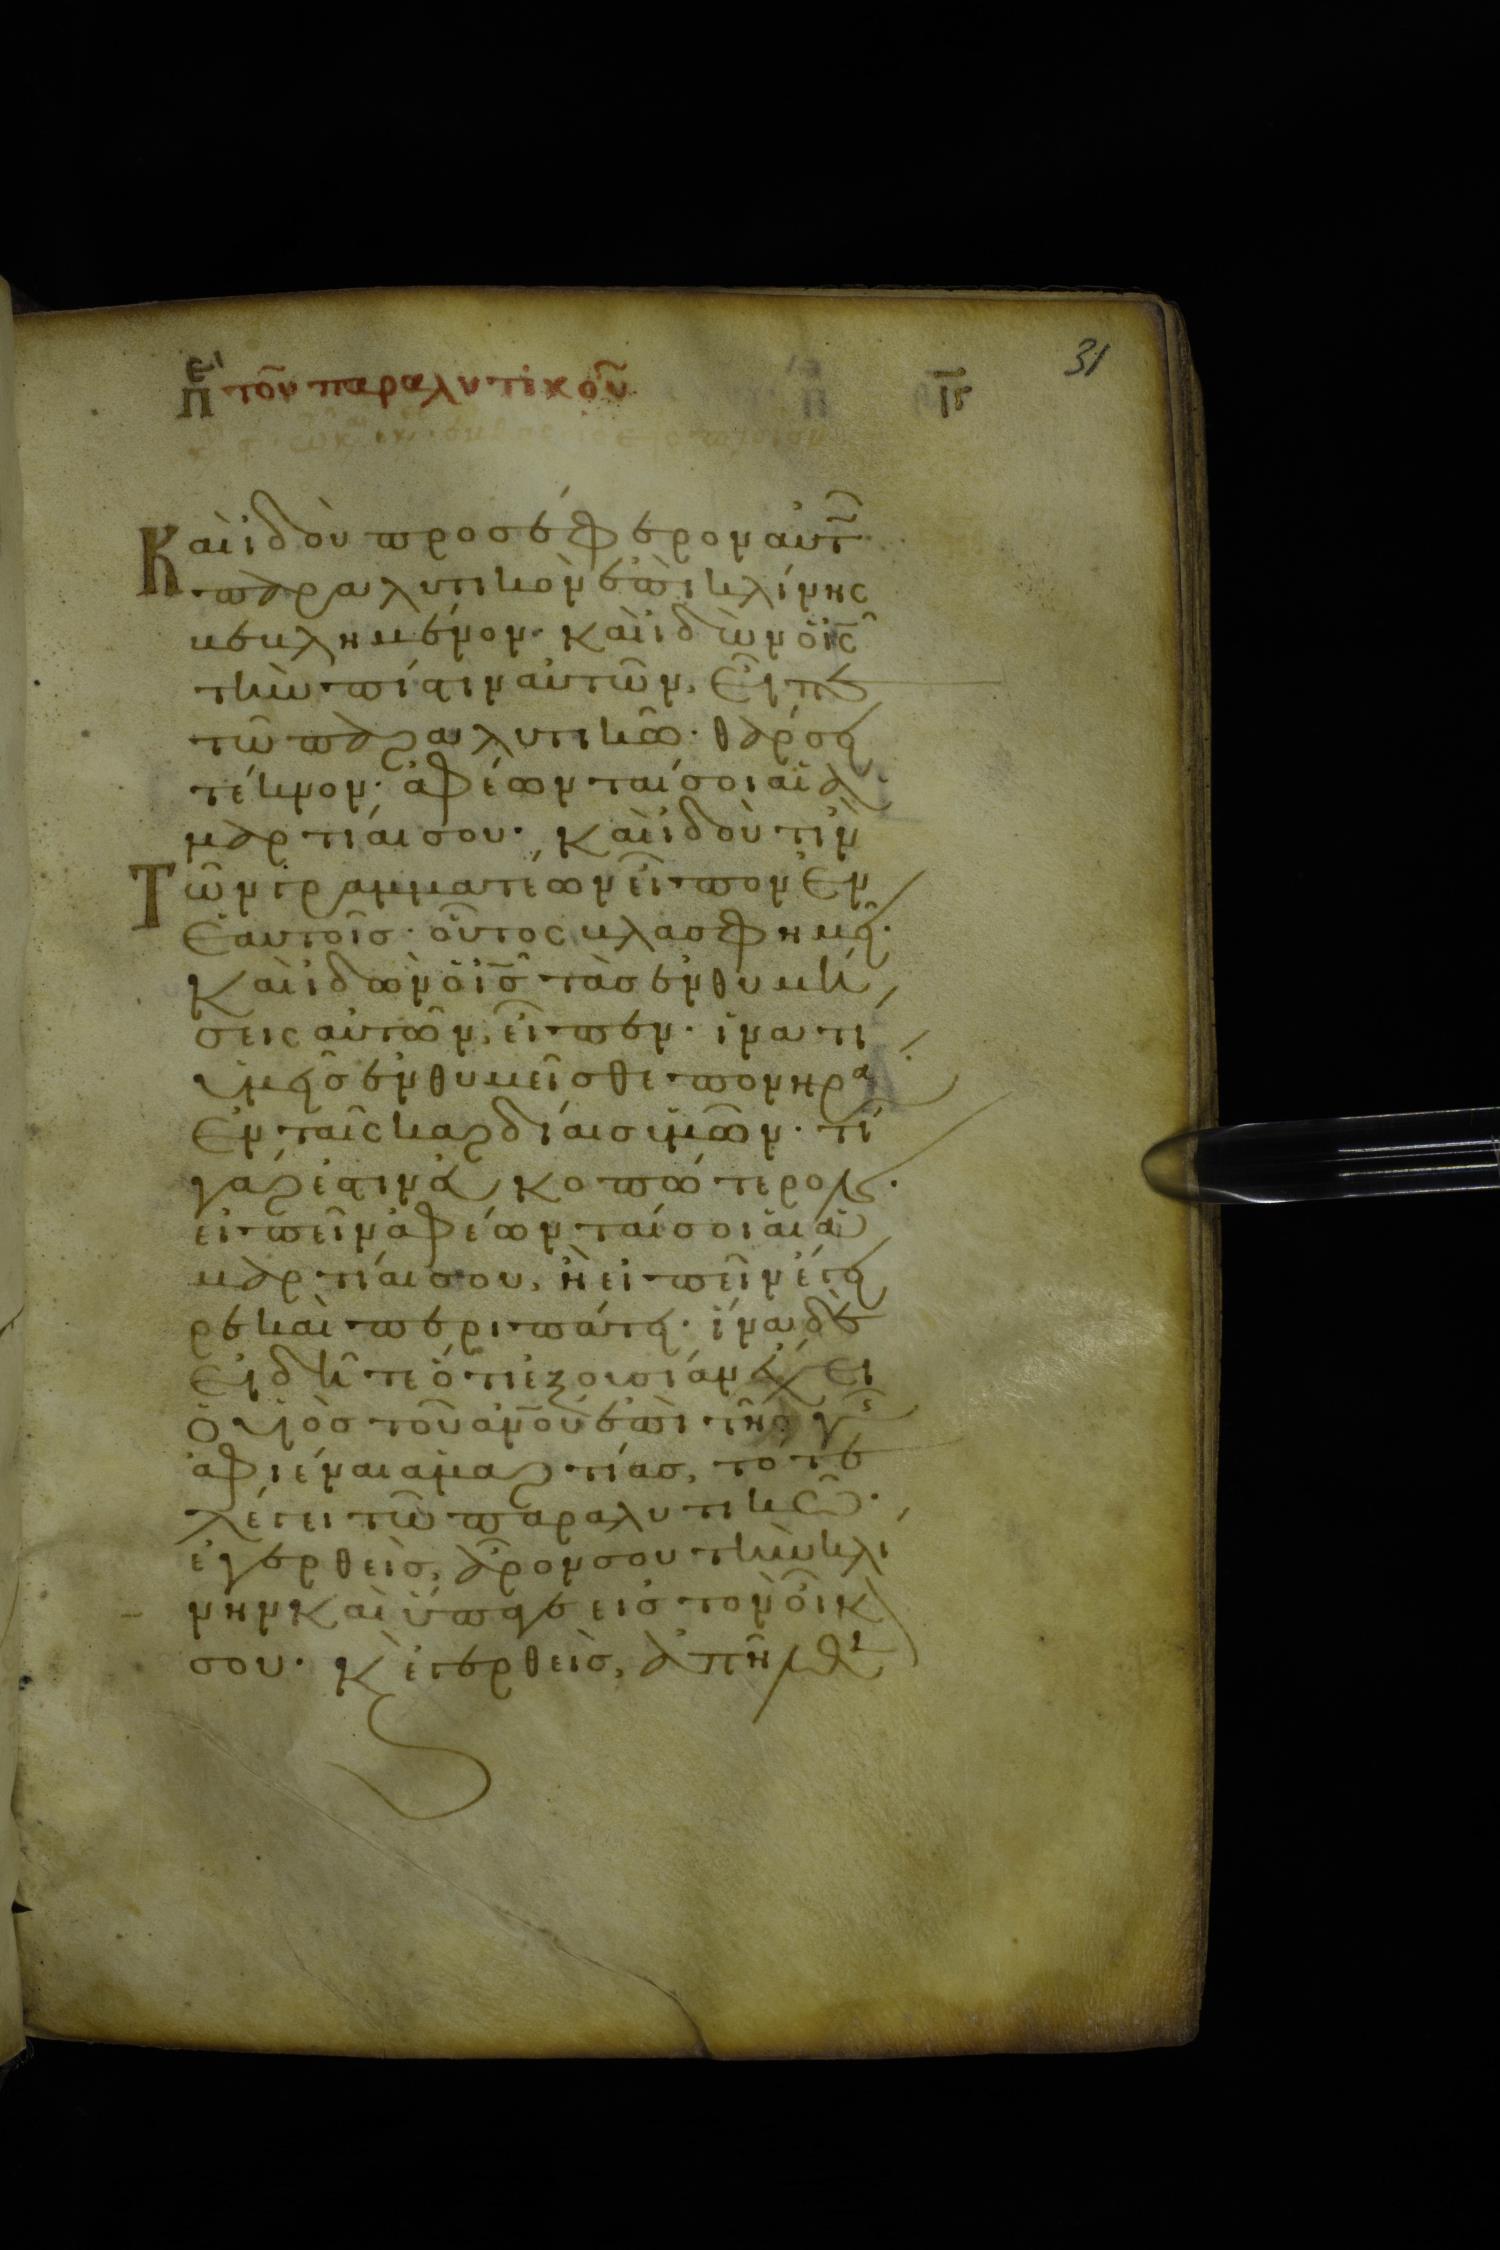 31
πε τοῦ παραλυτικοῦ ιγ
Καὶ ἰδοὺ προσέφερον αὐτ
παραλυτικὸν ἐπὶ κλίνης
βεβλημένον· καὶ ἰδὼν ὁ ις
τὴν πίστιν αὐτῶν, εἶπε
τῶ παραλυτικῶ· θάρσει
τέκνον· ἀφέωνταί σοι αἱ ἁ
μαρτίαι σου· καὶ ἰδού τινὲς
Τῶν γραμματέων εἶπον ἐν
ἑαυτοῖς· οὗτος βλασφημεῖ·
Καὶ ἰδὼν ὁ ις τὰς ἐνθυμή
σεις αὐτῶν, εἶπεν· ἵνα τί
ὑμεῖς ἐνθυμεῖσθε πονηρὰ
ἐν ταῖς καρδίαις ὑμῶν· τί
γάρ ἐστιν εὐκοπώτερον·
εἰπεῖν ἀφέωνταί σοι αἱ ἁ
μαρτίαι σου, ἢ εἰπεῖν ἔγει
ρε καὶ περιπάτει· ἵνα δὲ
εἰδῆτε ὅτι ἐξουσίαν ἔχει
ὁ υἱὸς τοῦ ανου ἐπὶ τῆς γῆς
ἀφιέναι ἁμαρτίας, τότε
λέγει τῶ παραλυτικῶ·
ἐγερθεὶς, ἆρον σου τὴν κλί
νην καὶ ὕπαγε εἰς τὸν οἶκ
σου· Κ ἐγερθεὶς, ἀπῆλθε